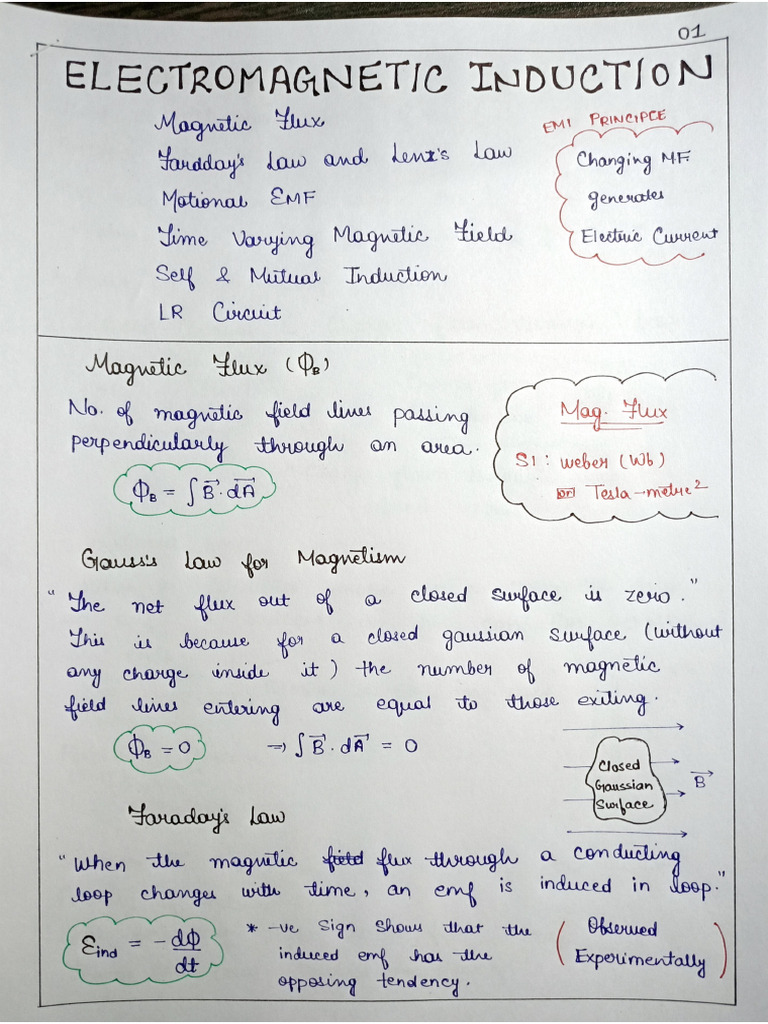 01
ELECTROMAGNETIC INDUCTION
Magnetic Flux
Faradday's Law and Lenz's Law
Motional EMF
Time Varying Magnetic Field
Self & Mutual Induction
LR Circuit
EMI PRINCIPLE
Changing MF
generates
Electric Current
Magnetic Flux (Φ_B)
No. of magnetic field lines passing
perpendicularly through an area.
Φ_B = ∫ B⃗ · dA⃗
Mag. Flux
SI : weber (Wb)
or Tesla-metre²
Gauss's Law for Magnetism
"The net flux out of a closed surface is zero."
This is because for a closed gaussian surface (without
any charge inside it) the number of magnetic
field lines entering are equal to those exiting.
Φ_B = 0 → ∫ B⃗ · dA⃗ = 0
Closed
Gaussian
Surface
B⃗
Faraday's Law
"When the magnetic field flux through a conducting
loop changes with time, an emf is induced in loop."
Ɛind = - dΦ/dt
* -ve sign shows that the
induced emf has the
opposing tendency.
(Observed
Experimentally)